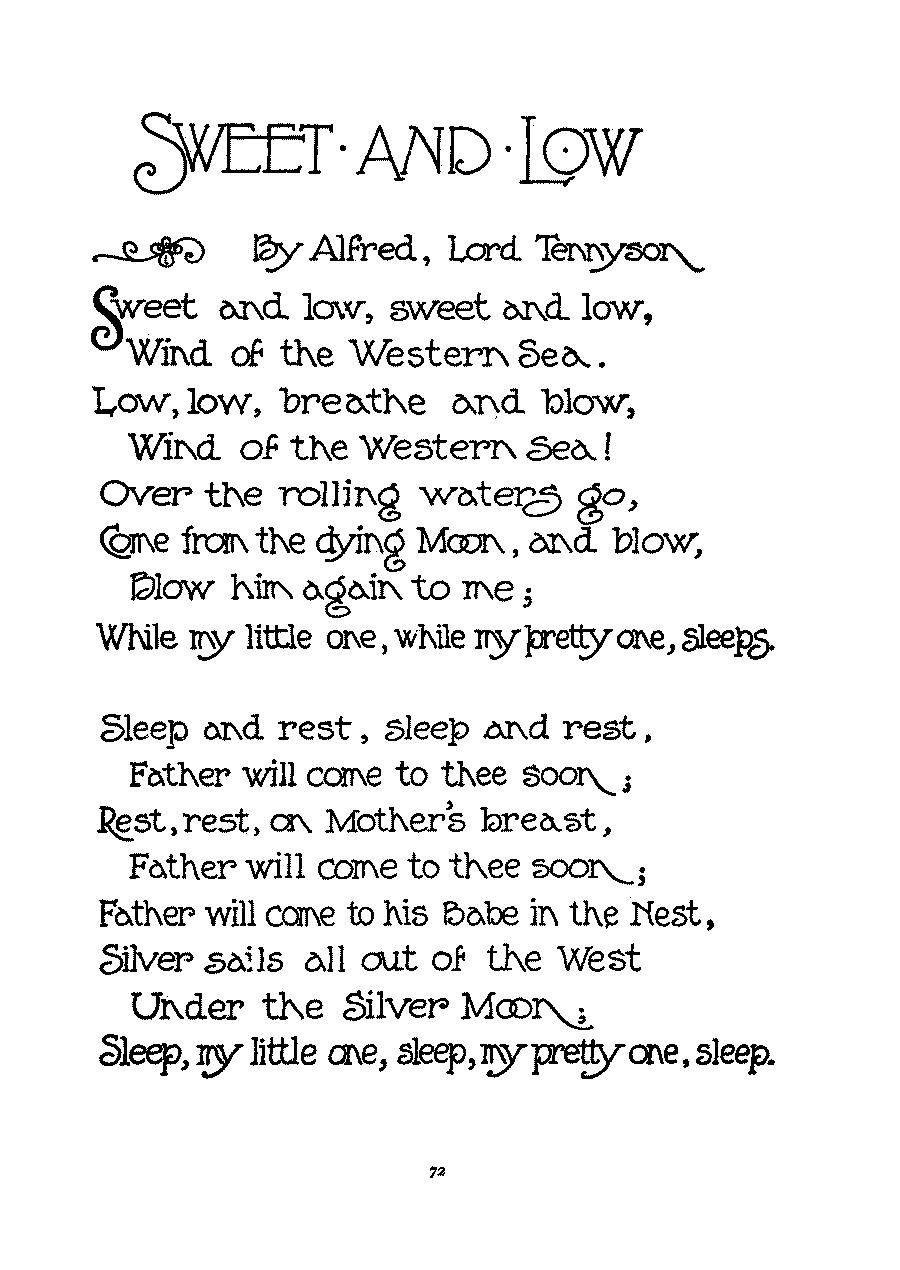 SWEET · AND · LOW
By Alfred, Lord Tennyson
Sweet and low, sweet and low,
Wind of the Western Sea.
Low, low, breathe and blow,
Wind of the Western Sea!
Over the rolling waters go,
Come from the dying Moon, and blow,
Blow him again to me;
While my little one, while my pretty one, sleeps.
Sleep and rest, sleep and rest,
Father will come to thee soon;
Rest, rest, on Mother's breast,
Father will come to thee soon;
Father will come to his Babe in the Nest,
Silver sails all out of the West
Under the Silver Moon;
Sleep, my little one, sleep, my pretty one, sleep.
72